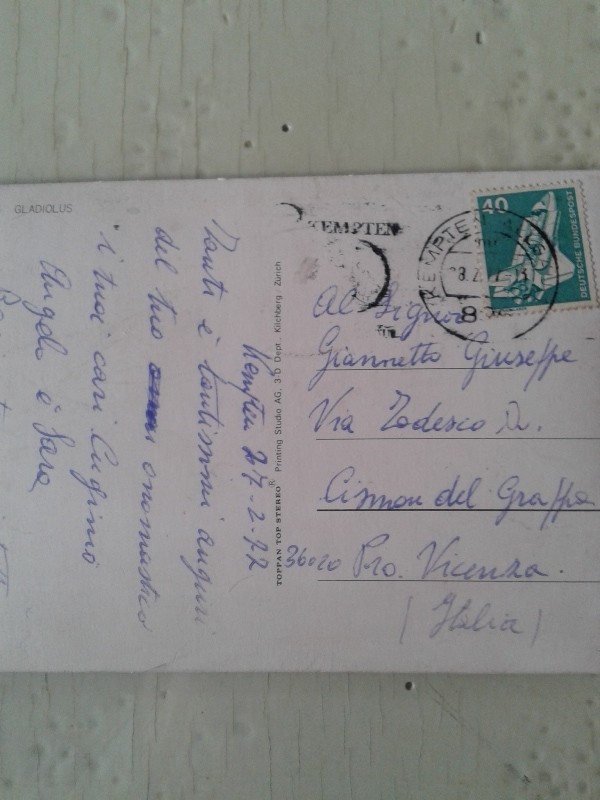 GLADIOLUS
Kempten 27-2-77
Tanti e tantissimi auguri
del tuo onomastico
i tuoi cari Cugini
Angelo e Sara
TOPPAN TOP STEREO® Printing Studio AG, 3-D Dept., Kilchberg-Zürich
KEMPTEN
KEMPTEN
40
DEUTSCHE BUNDESPOST
Al Signor
Giannetto Giuseppe
Via Todesco D.
Cismon del Grappa
36020 Pro. Vicenza.
(Italia)